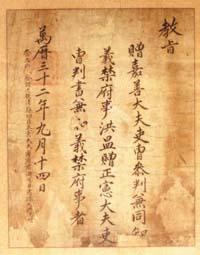 教旨
贈嘉善大夫吏曺參判兼同知
義禁府事洪昷贈正憲大夫吏
曺判書兼知義禁府事者
萬曆三十二年九月十四日